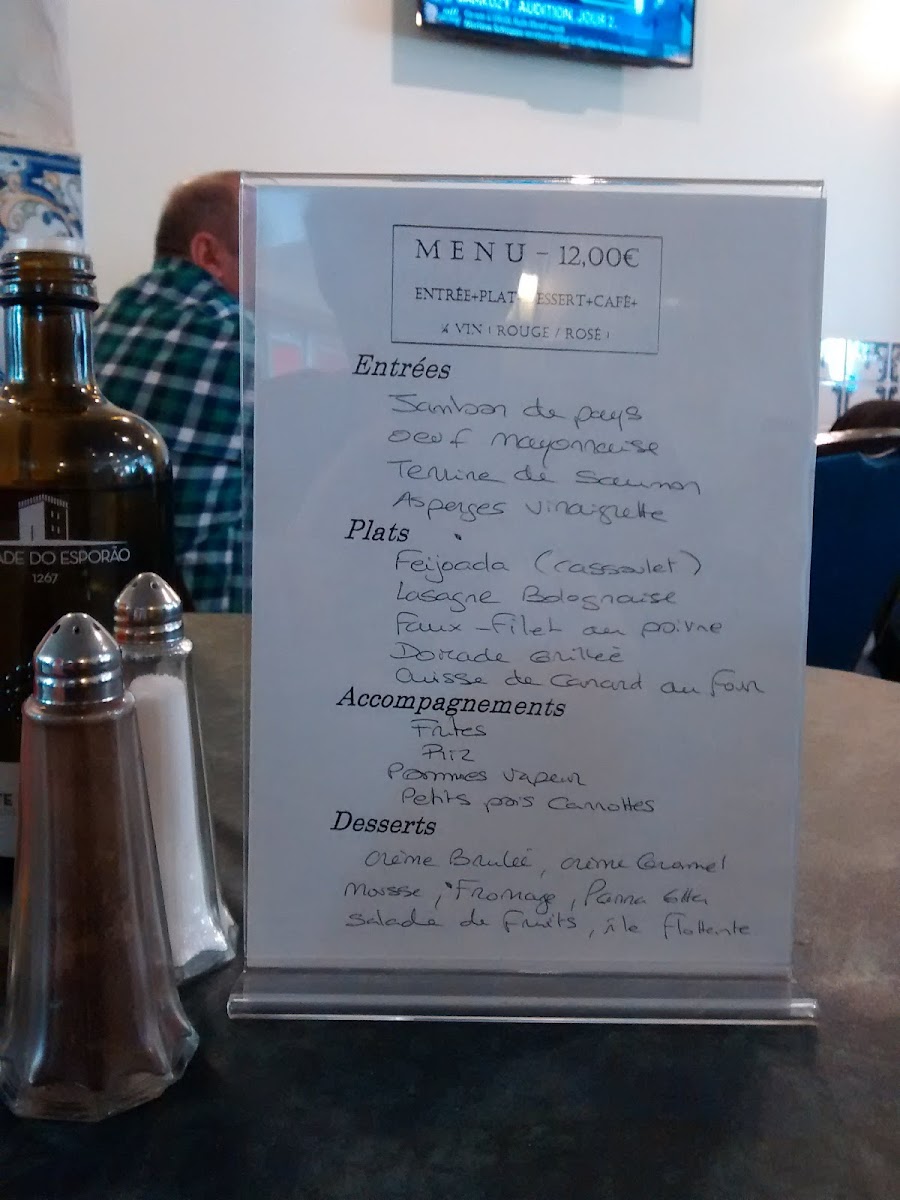 SARKOZY : AUDITION, JOUR 2
MENU – 12,00€
ENTRÉE+PLAT+DESSERT+CAFÉ+
¼ VIN ( ROUGE / ROSÉ )
Entrées
Jambon de pays
Oeuf Mayonnaise
Terrine de Saumon
Asperges vinaigrette
Plats
Feijoada (cassoulet)
Lasagne Bolognaise
Faux-Filet au poivre
Dorade Grilleé
Cuisse de Canard au Four
Accompagnements
Frites
Riz
Pommes vapeur
Petits pois Carrottes
Desserts
Crème Bruleé, crème Caramel
Mousse, Fromage, Panna Cotta
Salade de Fruits, île Flottante
ADE DO ESPORÃO
1267
TE